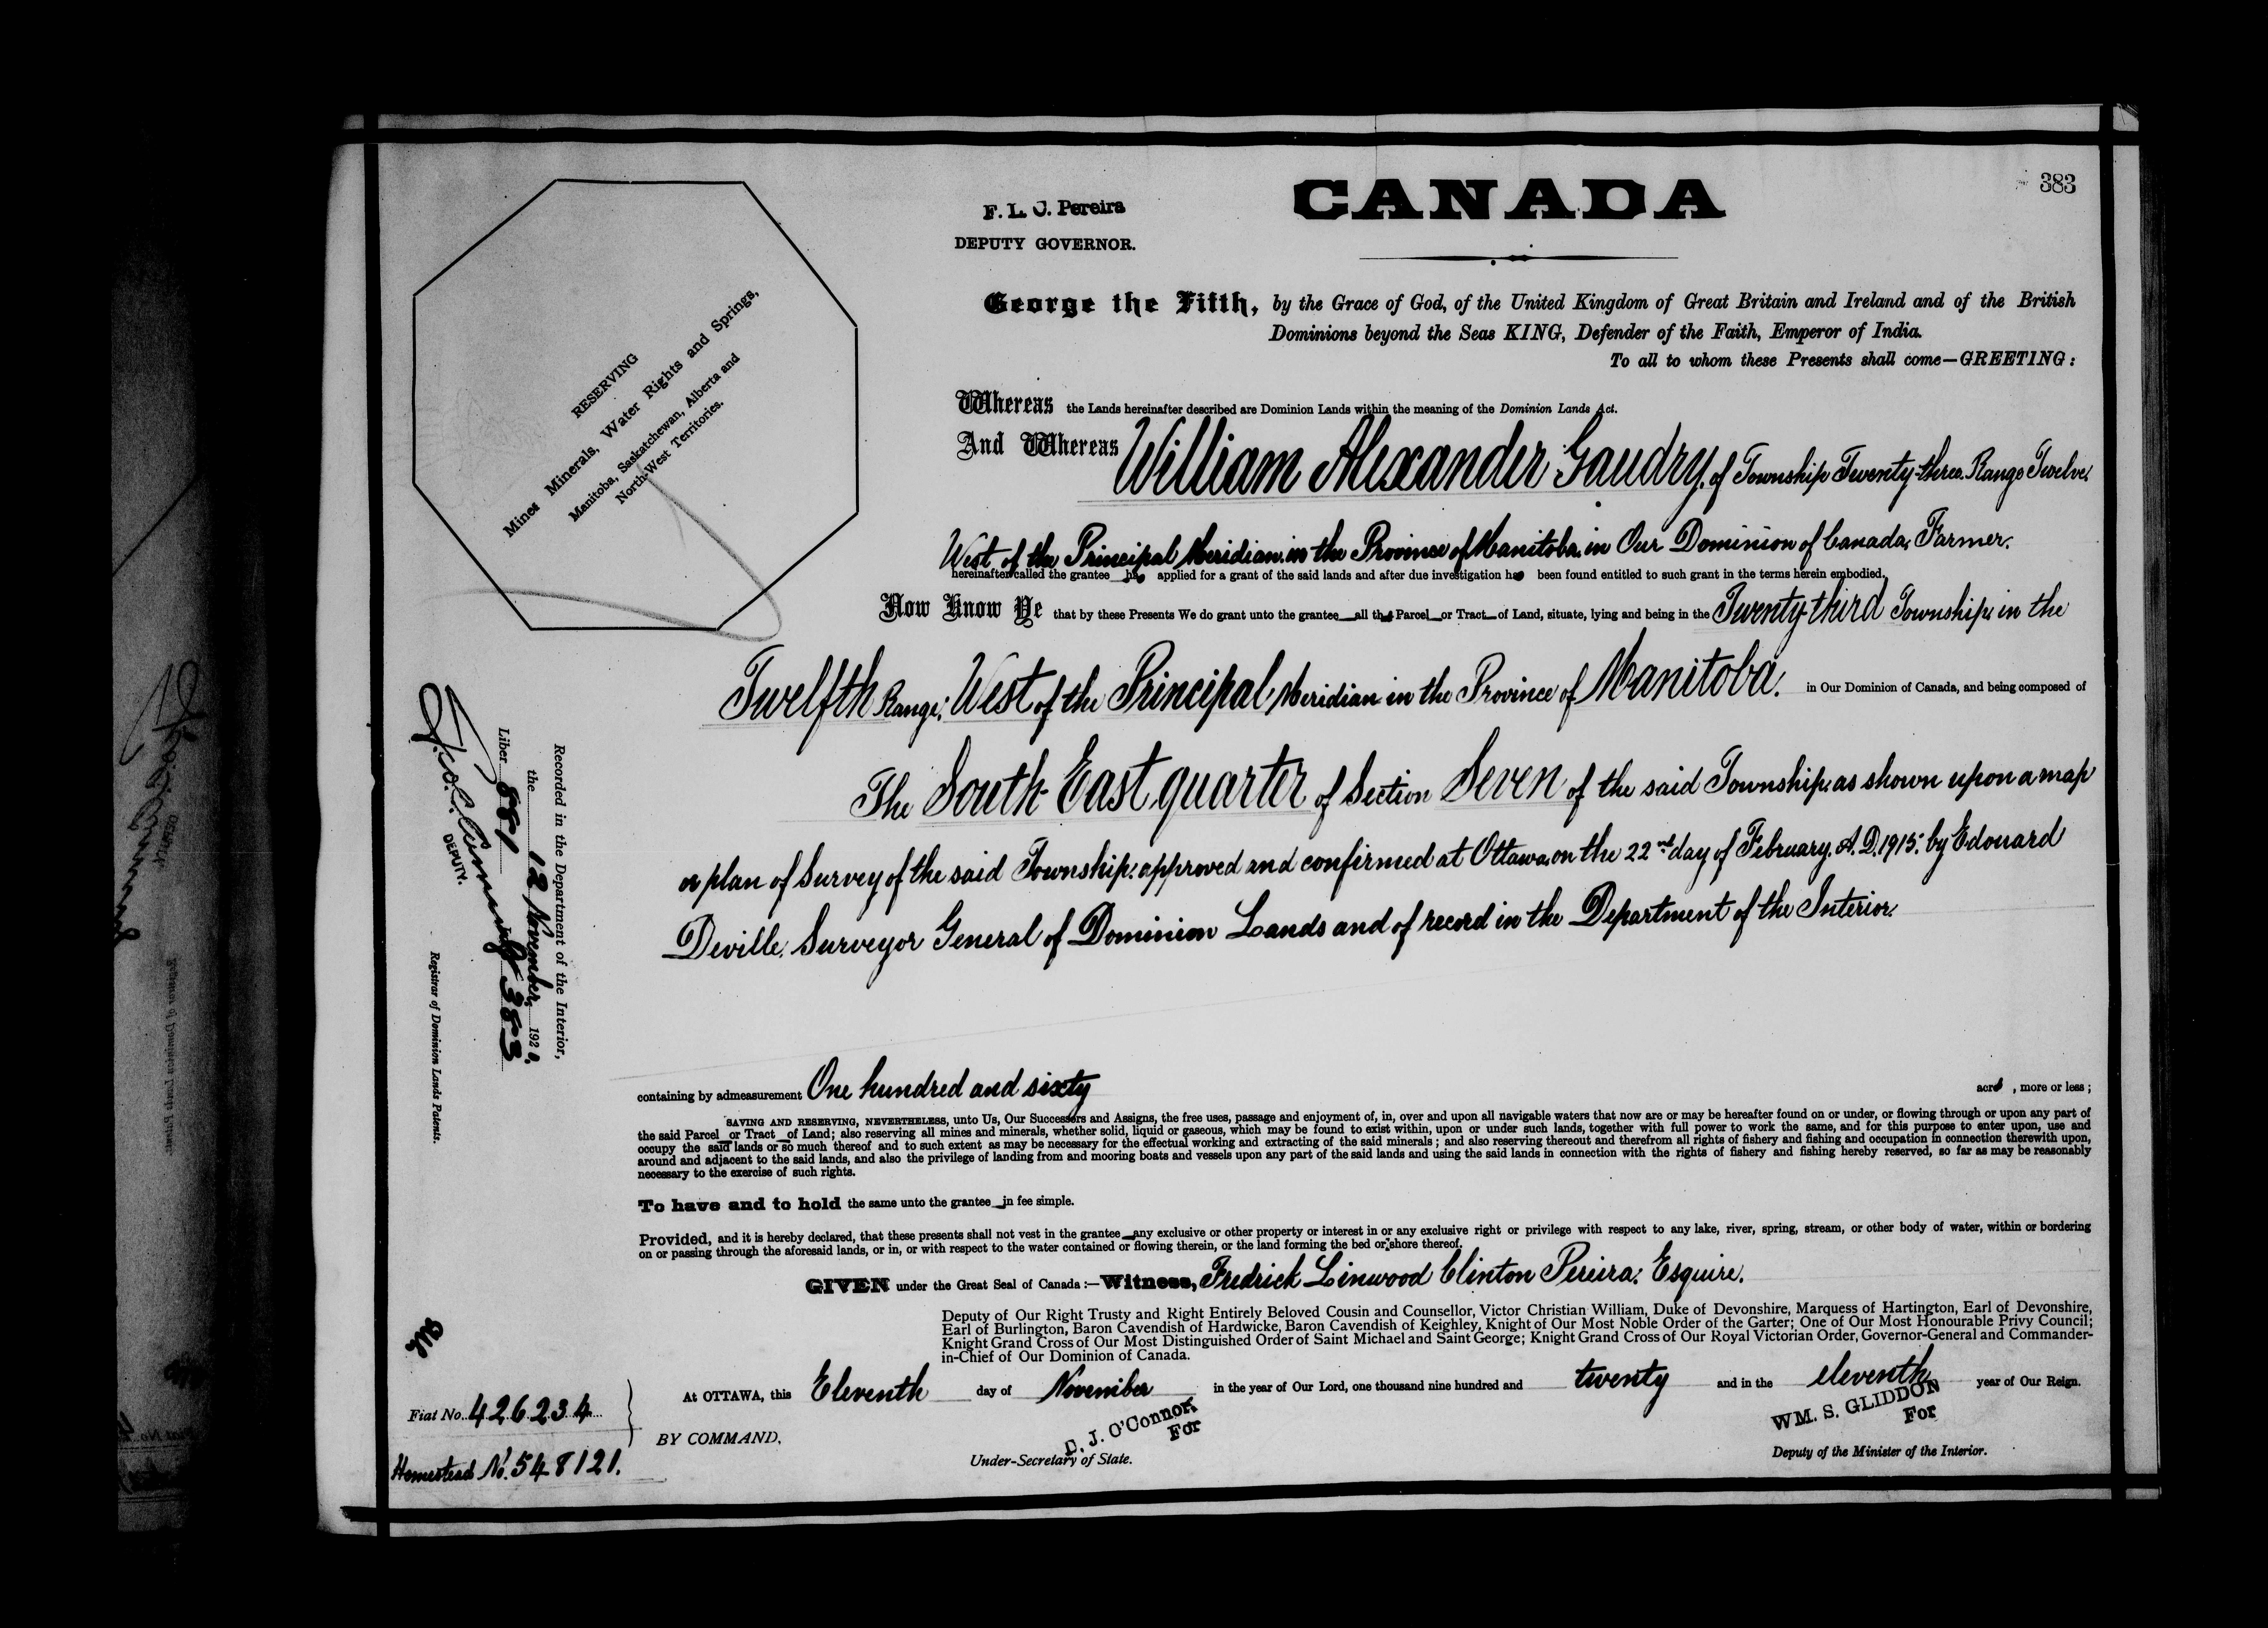 383
CANADA
F. L. C. Pereira
DEPUTY GOVERNOR.
George the Fifth, by the Grace of God, of the United Kingdom of Great Britain and Ireland and of the British
Dominions beyond the Seas KING, Defender of the Faith, Emperor of India.
To all to whom these Presents shall come—GREETING:
RESERVING
Mines Minerals, Water Rights and Springs,
Manitoba, Saskatchewan, Alberta and
North-West Territories.
Whereas the Lands hereinafter described are Dominion Lands within the meaning of the Dominion Lands Act.
And Whereas William Alexander Gaudry, of Township Twenty-three. Range Twelve.
West of the Principal Meridian. in the Province of Manitoba. in Our Dominion of Canada, Farmer.
hereinafter called the grantee has applied for a grant of the said lands and after due investigation has been found entitled to such grant in the terms herein embodied.
Now Know Ye that by these Presents We do grant unto the grantee all that Parcel or Tract of Land, situate, lying and being in the Twenty-third Township. in the
Twelfth Range: West of the Principal Meridian in the Province of Manitoba. in Our Dominion of Canada, and being composed of
The South East quarter of Section Seven of the said Township: as shown upon a map
or plan of Survey of the said Township: approved and confirmed at Ottawa, on the 22nd day of February. A. D. 1915: by Edouard
Deville, Surveyor General of Dominion Lands and of record in the Department of the Interior.
containing by admeasurement One hundred and sixty acres, more or less;
SAVING AND RESERVING, NEVERTHELESS, unto Us, Our Successors and Assigns, the free uses, passage and enjoyment of, in, over and upon all navigable waters that now are or may be hereafter found on or under, or flowing through or upon any part of
the said Parcel or Tract of Land; also reserving all mines and minerals, whether solid, liquid or gaseous, which may be found to exist within, upon or under such lands, together with full power to work the same, and for this purpose to enter upon, use and
occupy the said lands or so much thereof and to such extent as may be necessary for the effectual working and extracting of the said minerals; and also reserving thereout and therefrom all rights of fishery and fishing and occupation in connection therewith upon,
around and adjacent to the said lands, and also the privilege of landing from and mooring boats and vessels upon any part of the said lands and using the said lands in connection with the rights of fishery and fishing hereby reserved, so far as may be reasonably
necessary to the exercise of such rights.
To have and to hold the same unto the grantee in fee simple.
Provided, and it is hereby declared, that these presents shall not vest in the grantee any exclusive or other property or interest in or any exclusive right or privilege with respect to any lake, river, spring, stream, or other body of water, within or bordering
on or passing through the aforesaid lands, or in, or with respect to the water contained or flowing therein, or the land forming the bed or shore thereof.
GIVEN under the Great Seal of Canada:—Witness, Fredrick Linwood Clinton Pereira: Esquire.
Deputy of Our Right Trusty and Right Entirely Beloved Cousin and Counsellor, Victor Christian William, Duke of Devonshire, Marquess of Hartington, Earl of Devonshire,
Earl of Burlington, Baron Cavendish of Hardwicke, Baron Cavendish of Keighley, Knight of Our Most Noble Order of the Garter; One of Our Most Honourable Privy Council;
Knight Grand Cross of Our Most Distinguished Order of Saint Michael and Saint George; Knight Grand Cross of Our Royal Victorian Order, Governor-General and Commander-
in-Chief of Our Dominion of Canada.
At OTTAWA, this Eleventh day of November in the year of Our Lord, one thousand nine hundred and twenty and in the eleventh year of Our Reign.
BY COMMAND,
D. J. O'Connor
For
Under-Secretary of State.
WM. S. GLIDDON
For
Deputy of the Minister of the Interior.
Recorded in the Department of the Interior,
the 12 November, 1920.
Liber 881 383
DEPUTY.
Registrar of Dominion Lands Patents.
Fiat No. 426234
Homestead No. 548121.